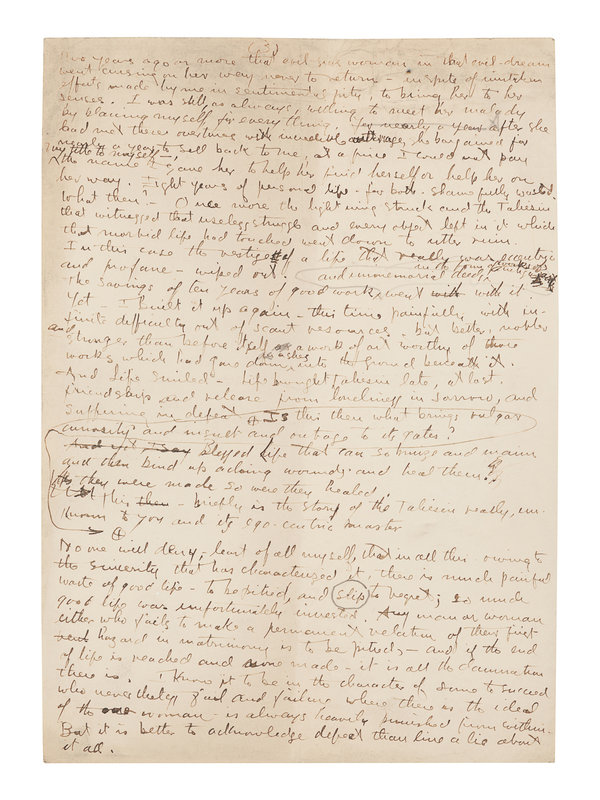 (3)
Two years ago or more that evil sick woman in that evil-dream
went cursing on her way never to return – in spite of
efforts made by me in sentimental pity, to bring her to her
senses. I was still, as always, willing to meet her malady
by blaming myself for everything for nearly a year after she
had met these overtures with incredible she bargained for
nearly a year to sell back to me, at a price I could not pay
my title to myself –!
& the name I gave her to help her find herself or help her on
her way. Eight years of personal life – for both – shamefully wasted.
What then – Once more the lightning struck and the Taliesin
that witnessed that useless struggle and every object left in it which
that morbid life had touched went down to utter ruin.
In this case the vestige of a life that really was eccentric
and profane – wiped out. and immemorial deeds
in the form of works of
The savings of ten years of good work, went with with it.
Yet – I built it up again – this time painfully, with in-
finite difficulty out of scant resources. but better, nobler
and
stronger, than before itself a work of art worthy of those
works which had gone down into the ground beneath it.
to ashes
And Life smiled – Life brought Taliesin late, at last,
friendship and release from loneliness in sorrow, and
suffering in defeat Is this then what brings vulgar
curiosity and insult and outrage to its gates?
And yet I say blessed life that can so bruise and maim
and then bind up aching wounds and heal them!
As they were made so were they healed
this then – briefly is the story of the Taliesin really, un-
known to you and its ego-centric master
No one will deny, least of all myself, that in all this – owing to
the sincerity that has characterized it, there is much painful
waste of good life – to be pitied, and slip to regret; so much
good life was unfortunately invested. Any man or woman
either who fails to make a permanent relation of their first
hazard in matrimony is to be pitied – and if the end
of life is reached and none made – it is all the damnation
there is. I know it to be in the character of some to succeed
who nevertheless fail and failure where there is the ideal
of the one woman – is always heavily punished from within.
But it is better to acknowledge defeat than live a lie about
it all.